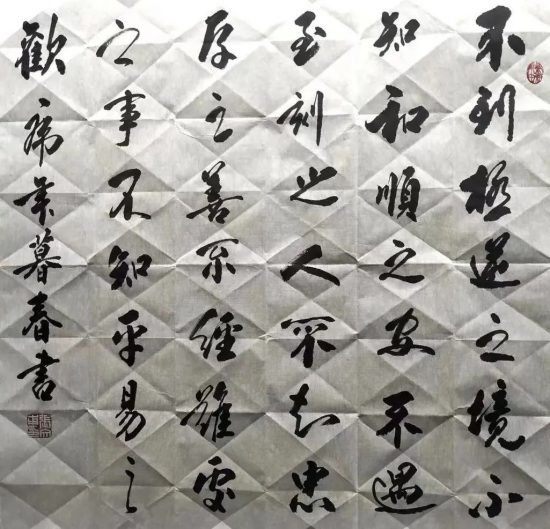 不到極逆之境不
知和順之安不遇
至刻之人不知忠
厚之善不經難處
之事不知平易之
歡虎年暮春書